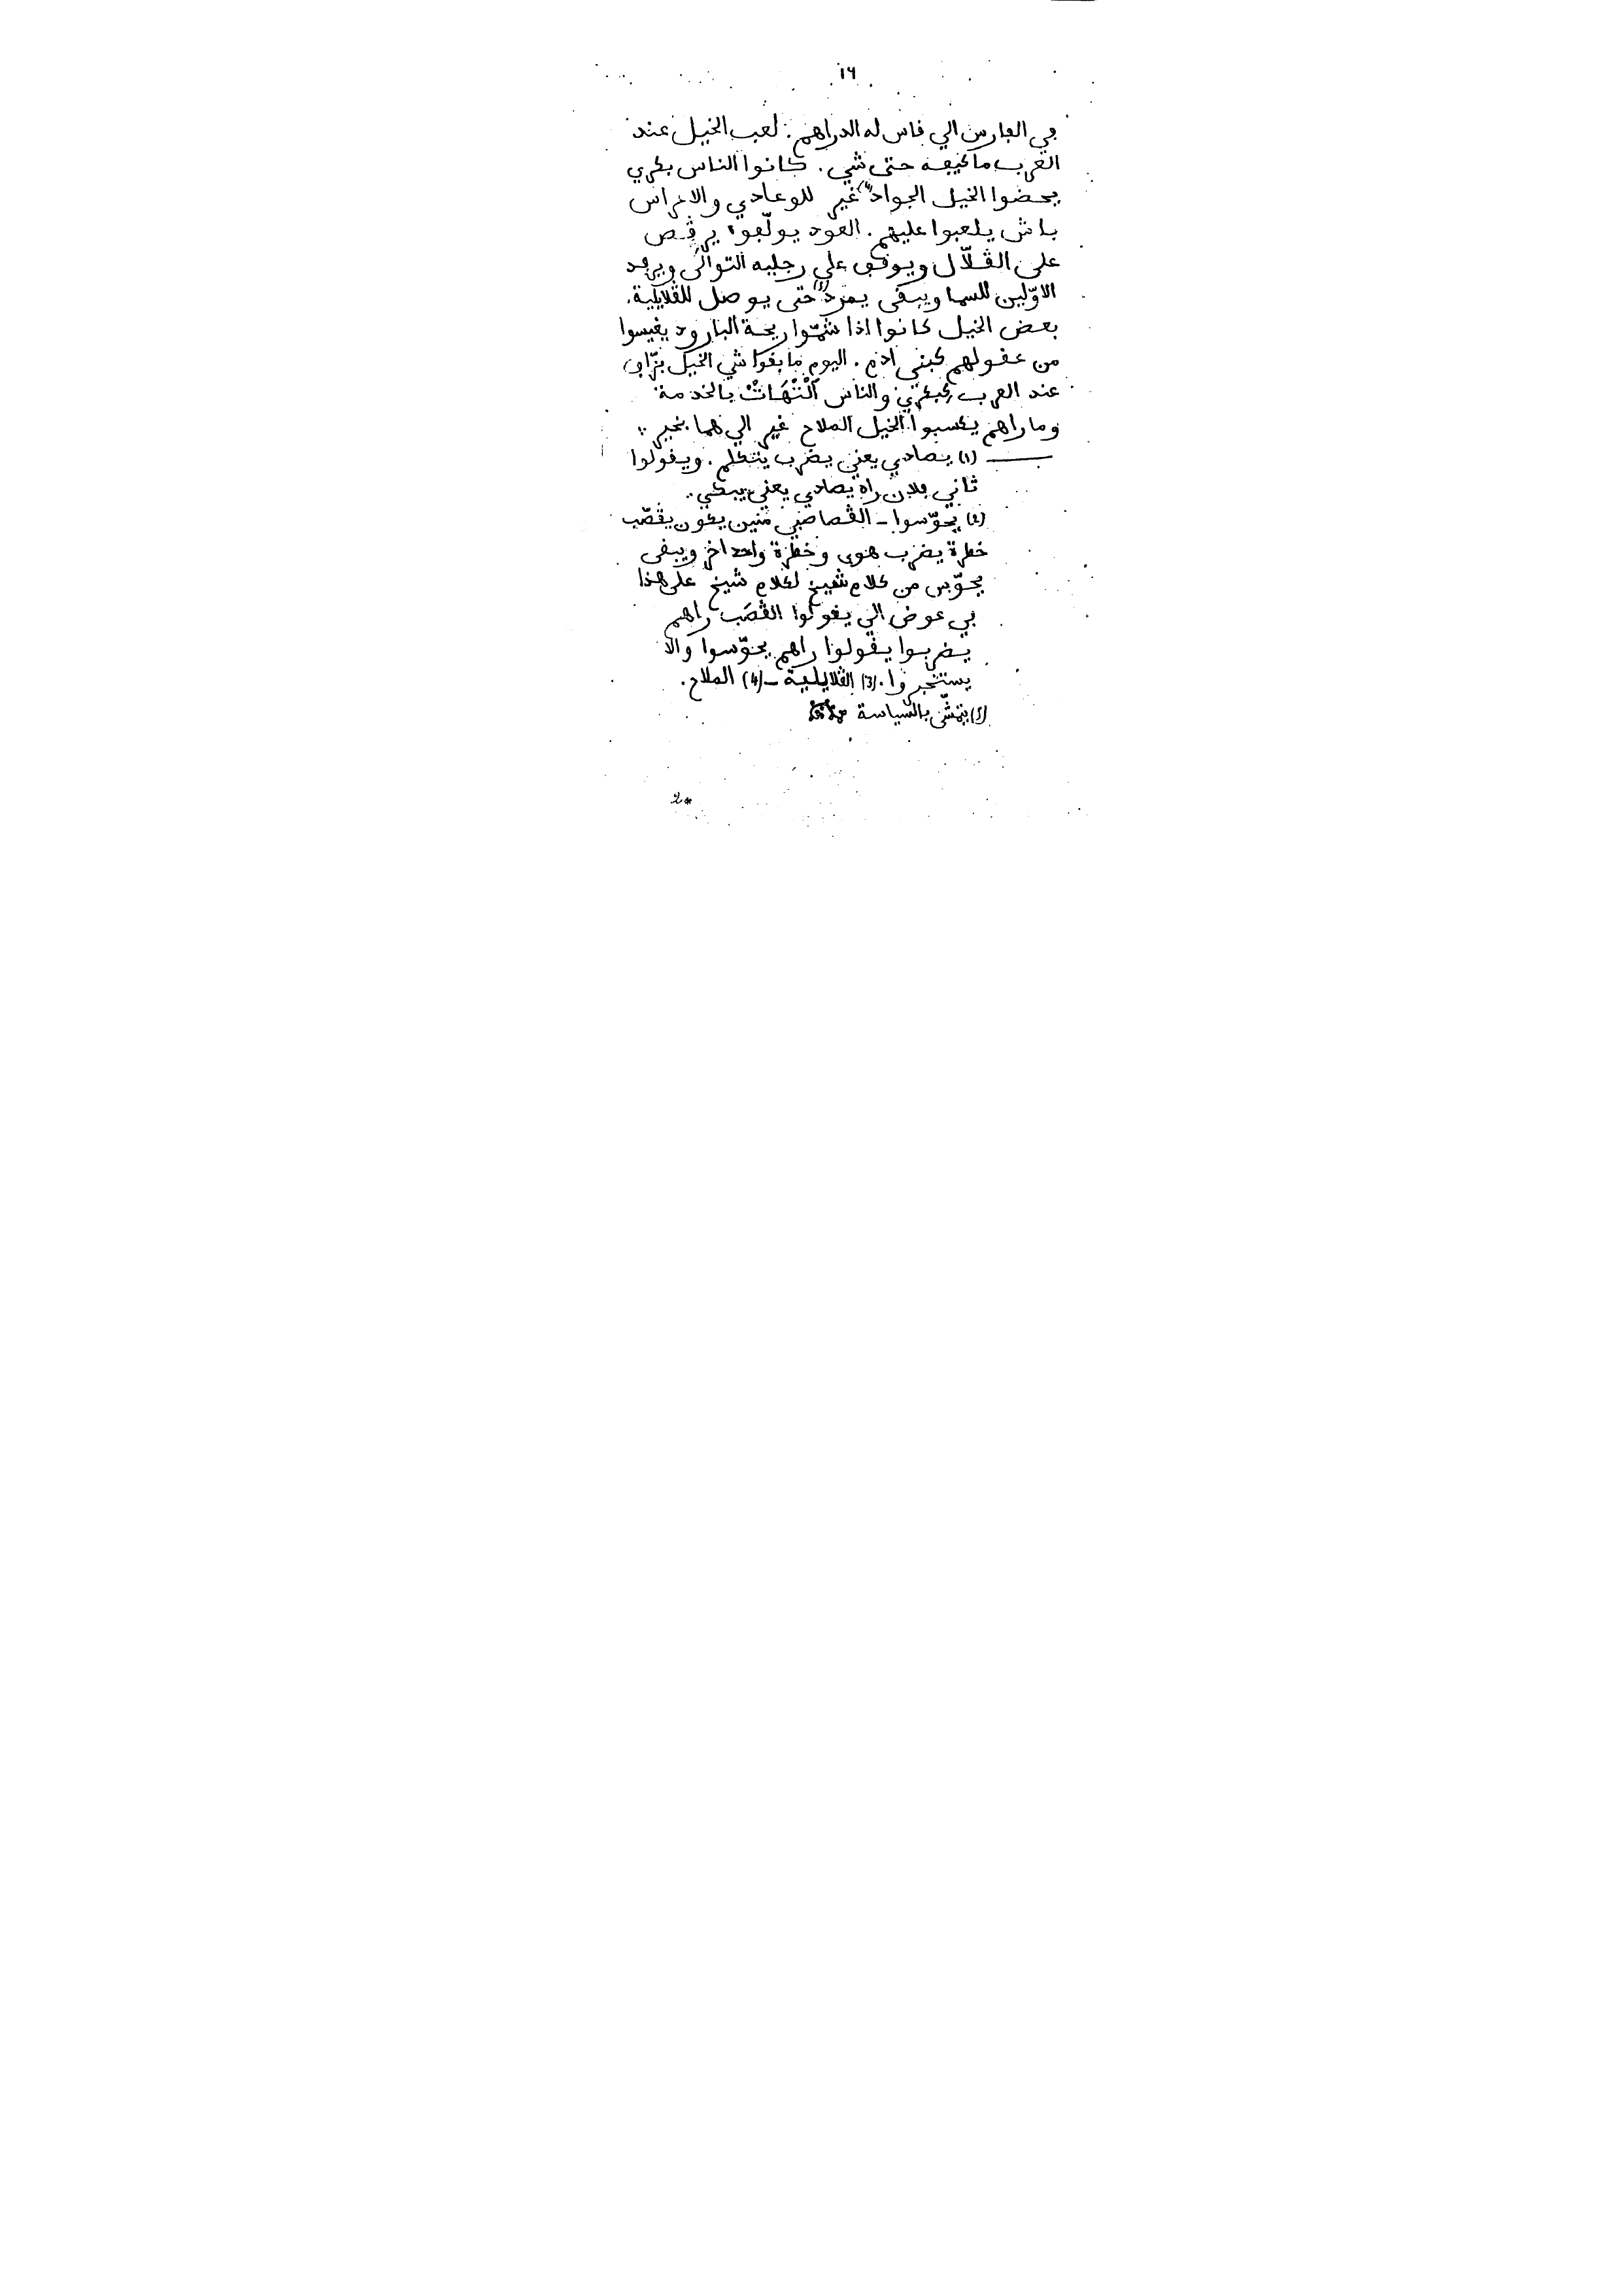 ١٩
في الفارس الي قاس له الدراهم: لعب الخيل عند
العرب ما كيفه حتى شي. كانوا الناس بكري
يحضوا الخيل الجواد(4) غير للوعادي والاعراس
باش يلعبوا عليهم. العود يولّفوه يرڨص
على الڨلّال ويوقف على رجليه التوالَى ويرفد
الاوّلين للسما ويبقى يمرد حتى يوصل للڨلايلية.
بعض الخيل كانوا اذا شمّوا ريحة البارود يغيسوا
من عقولهم كبني ادم. اليوم ما بقوا شي الخيل بزّاف
عند العرب كبكري والناس الْتْهَاتْ بالخدمة
وما راهم يكسبوا الخيل الملاح غير الي هما بخير
(1) يصادي يعني يضرب يتكلم. ويقولوا
ثاني فلان راه يصادي يعني يبكي..
(2) يحوّسوا - الڨصاصبي منين يكون يڨصّب
خطرة يضرب هوى وخطرة واحد اخر ويبقى
يحوّس من كلام شيخ لكلام شيخ على هذا
في عوض الي يقولوا الڨصَب راهم
يضربوا يقولوا راهم يحوّسوا والا
يستخبروا. (3) الڨلايلية - (4) الملاح.
يتمشّى بالسياسة
2*